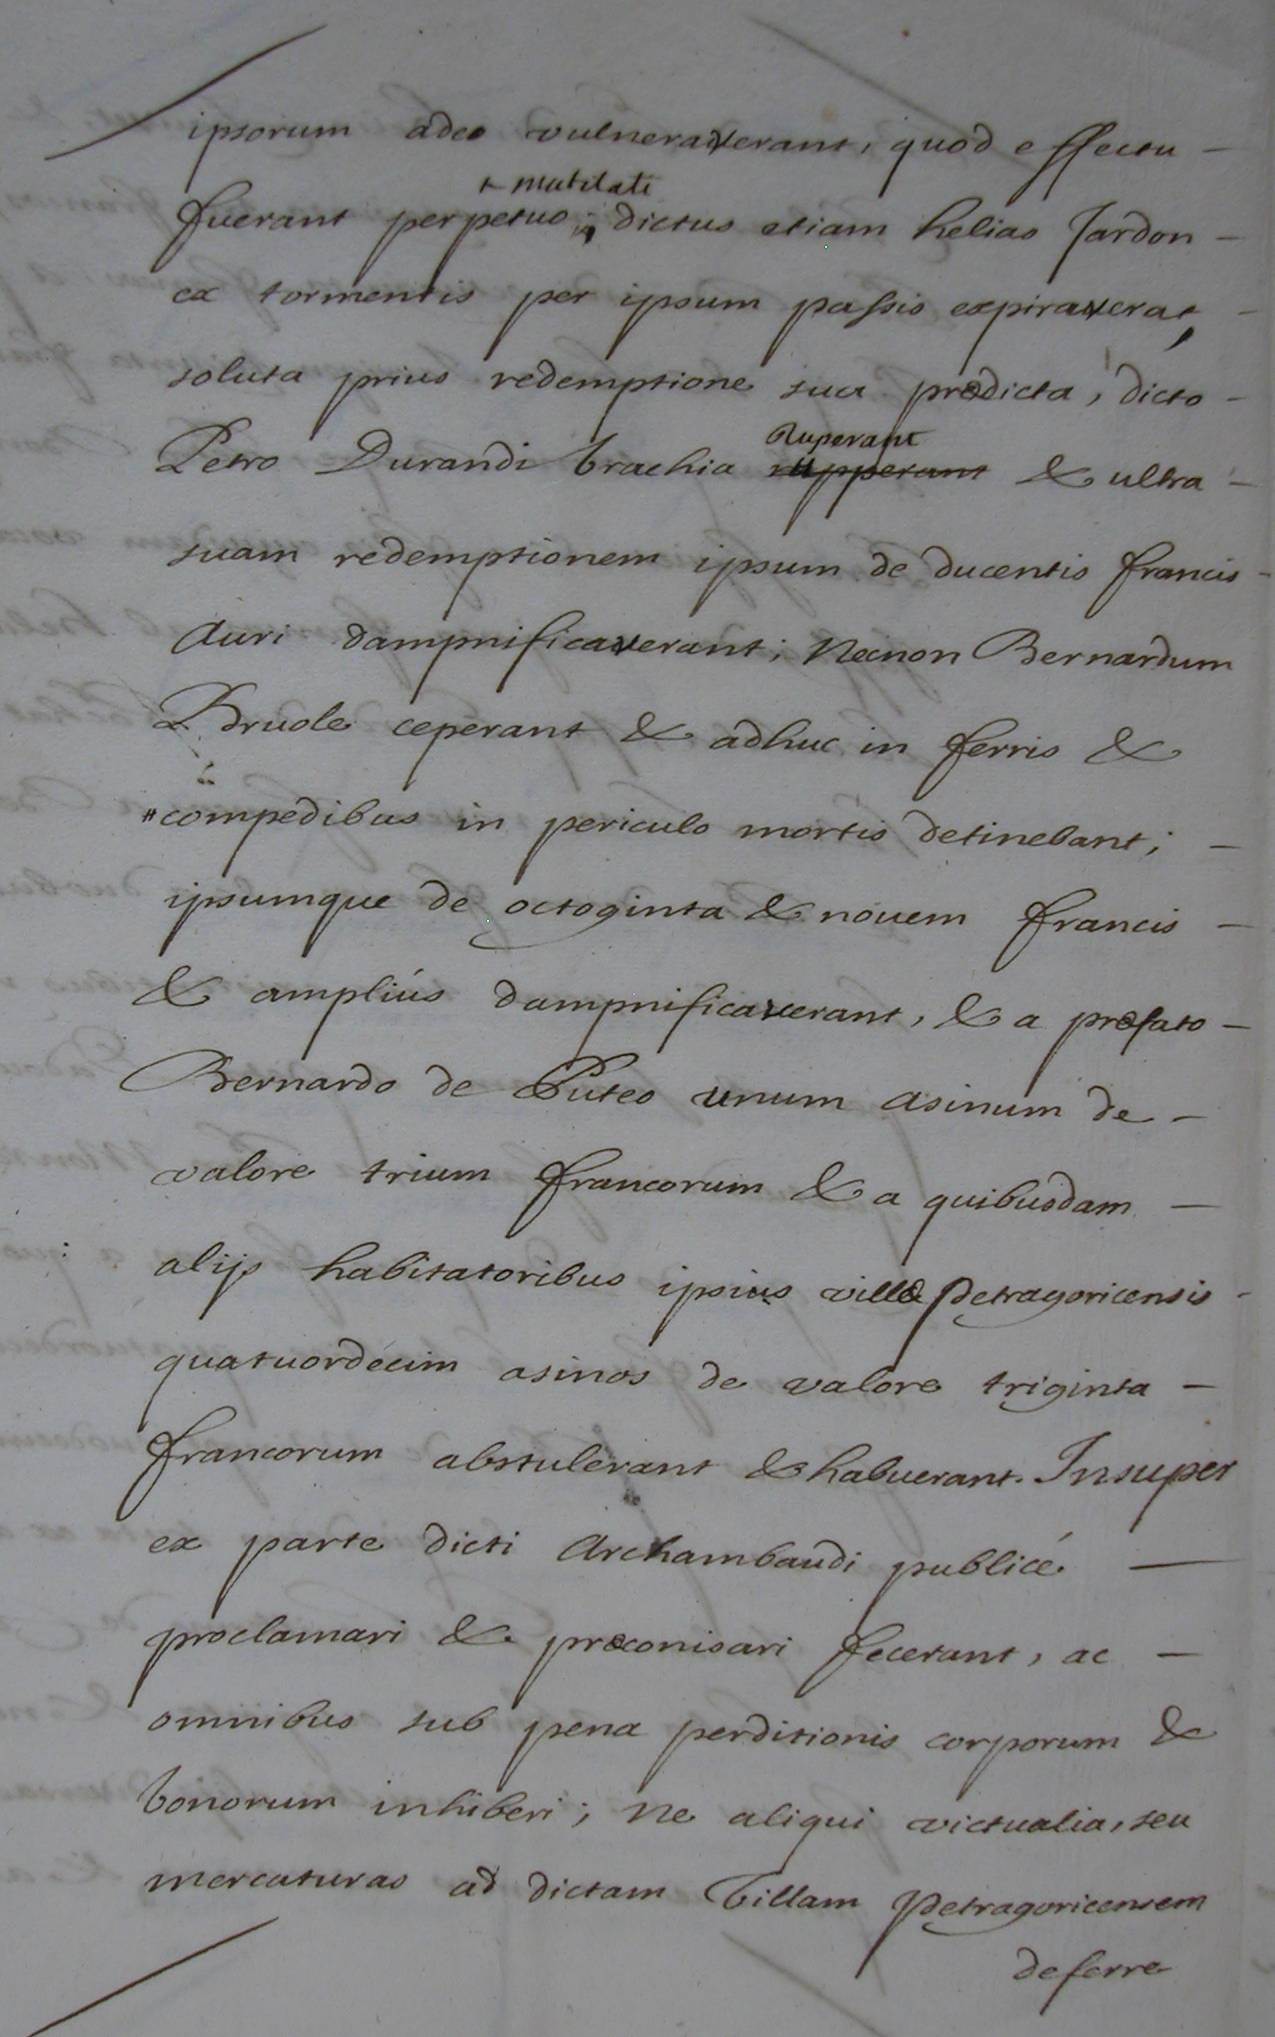 ipsorum adeo vulneraverant, quod effectu -
+ mutilati
fuerant perpetuo; dictus etiam helias Jardon -
ex tormentis per ipsum passis expiraverat, -
soluta prius redemptione sua prædicta, dicto -
Ruperant
Petro Durandi brachia rupperant & ultra -
suam redemptionem ipsum de ducentis francis -
Auri dampnificaverant; Necnon Bernardum
Bruole ceperant & adhuc in ferris &
"compedibus in periculo mortis detinebant; -
ipsumque de octoginta & nouem francis -
& ampliús dampnificaverant, & a præfato -
Bernardo de Puteo unum asinum de -
valore trium francorum & a quibusdam -
alijs habitatoribus ipsius villæ Petragoricensis -
quatuordecim asinos de valore triginta -
francorum abstulerant & habuerant. Insuper
ex parte dicti Archambaudi publicé -
proclamari & præconisari fecerant, ac -
omnibus sub pena perditionis corporum &
bonorum inhiberi; Ne aliqui victualia, seu
mercaturas ad dictam Villam Petragoricensem
deferre